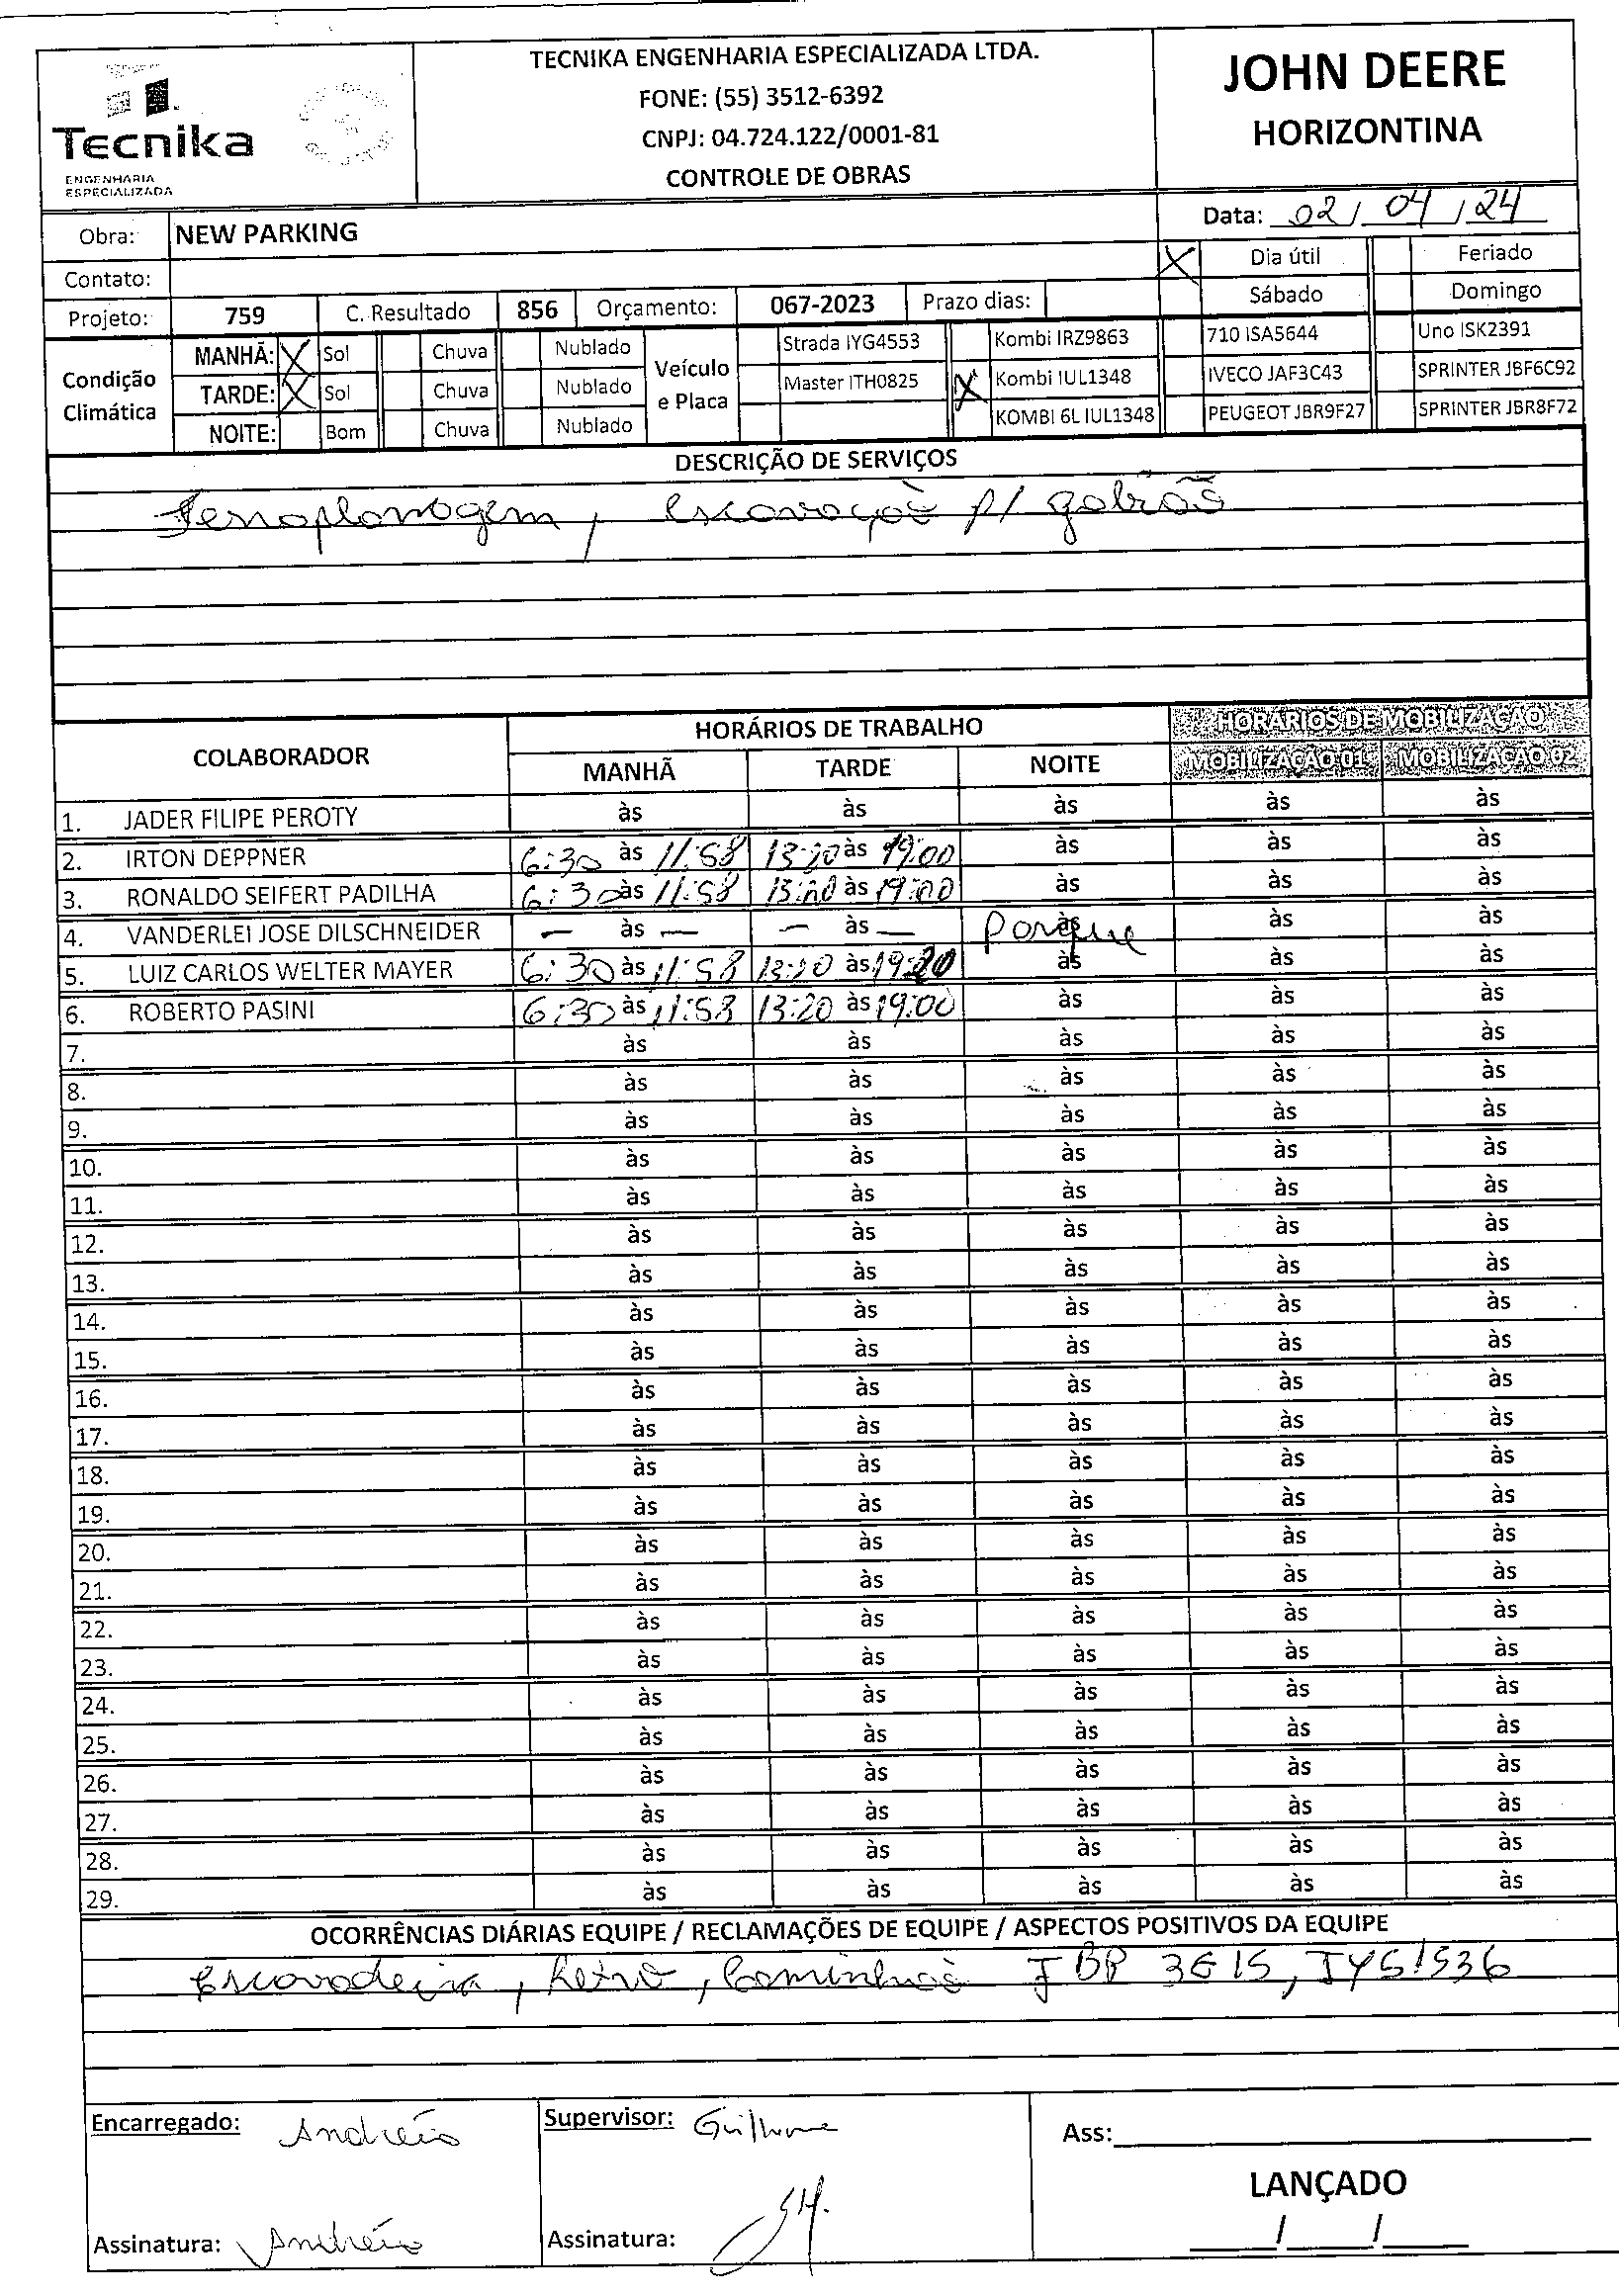 TECNIKA ENGENHARIA ESPECIALIZADA LTDA.
FONE: (55) 3512-6392
CNPJ: 04.724.122/0001-81
CONTROLE DE OBRAS
Tecnika
ENGENHARIA
ESPECIALIZADA
JOHN DEERE
HORIZONTINA
Data: 02/04/24
Obra: NEW PARKING
Contato:
X Dia útil Feriado
Sábado Domingo
Projeto: 759 C. Resultado 856 Orçamento: 067-2023 Prazo dias:
Condição Climática
MANHÃ: X Sol Chuva Nublado
TARDE: X Sol Chuva Nublado
NOITE: Bom Chuva Nublado
Veículo e Placa
Strada IYG4553 Kombi IRZ9863 710 ISA5644 Uno ISK2391
Master ITH0825 X Kombi IUL1348 IVECO JAF3C43 SPRINTER JBF6C92
KOMBI 6L IUL1348 PEUGEOT JBR9F27 SPRINTER JBR8F72
DESCRIÇÃO DE SERVIÇOS
Terraplanagem, escavação p/ gabião
COLABORADOR HORÁRIOS DE TRABALHO HORÁRIOS DE MOBILIZAÇÃO
MANHÃ TARDE NOITE MOBILIZAÇÃO 01 MOBILIZAÇÃO 02
1. JADER FILIPE PEROTY às às às às às
2. IRTON DEPPNER 6:30 às 11:58 13:20 às 19:00 às às às
3. RONALDO SEIFERT PADILHA 6:30 às 11:58 13:20 às 19:00 às às às
4. VANDERLEI JOSE DILSCHNEIDER – às – – às – Parque às às
5. LUIZ CARLOS WELTER MAYER 6:30 às 11:58 13:20 às 19:20 às às às
6. ROBERTO PASINI 6:30 às 11:58 13:20 às 19:00 às às às
7. às às às às às
8. às às às às às
9. às às às às às
10. às às às às às
11. às às às às às
12. às às às às às
13. às às às às às
14. às às às às às
15. às às às às às
16. às às às às às
17. às às às às às
18. às às às às às
19. às às às às às
20. às às às às às
21. às às às às às
22. às às às às às
23. às às às às às
24. às às às às às
25. às às às às às
26. às às às às às
27. às às às às às
28. às às às às às
29. às às às às às
OCORRÊNCIAS DIÁRIAS EQUIPE / RECLAMAÇÕES DE EQUIPE / ASPECTOS POSITIVOS DA EQUIPE
Escavadeira, Retro, Caminhão JBP 3G15, IYS1536
Encarregado: Andréio Supervisor: Guilherme Ass:
LANÇADO
Assinatura: Andréio Assinatura:
/ /